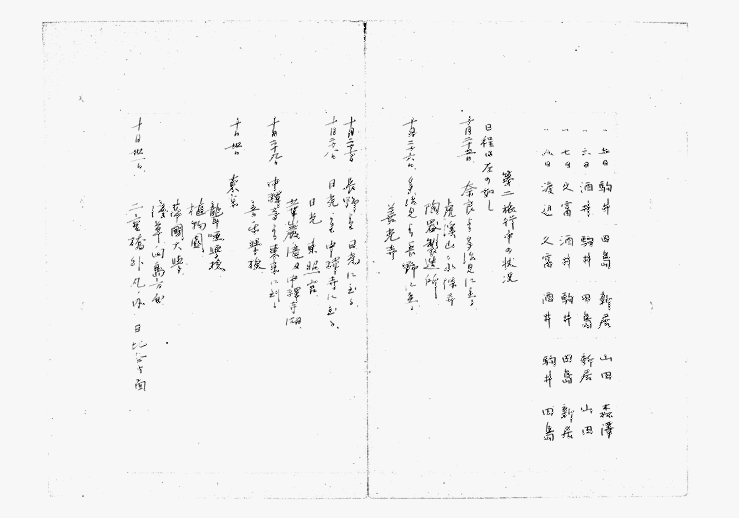 〃 五日 駒井 田島 新居 山田 森澤
〃 六日 酒井 駒井 田島 新居 山田
〃 七日 久富 酒井 駒井 田島 新居
〃 八日 渡辺 久富 酒井 駒井 田島
第二 旅行中の状況
日程は左の如し
十月二十五日 奈良より多治見に至る
虎渓山 永保寺
陶器製造所
十月二十六日 多治見より長野に至る
善光寺
十月二十七日 長野より日光に至る
十月二十八日 日光より中禅寺に至る
日光 東照宮
華厳瀧及中禅寺湖
十月二十九日 中禅寺より東京に到る
音楽学校
十月卅日 東京
聾唖学校
植物園
帝國大学
浅草 向島
十月卅一日 二重橋外